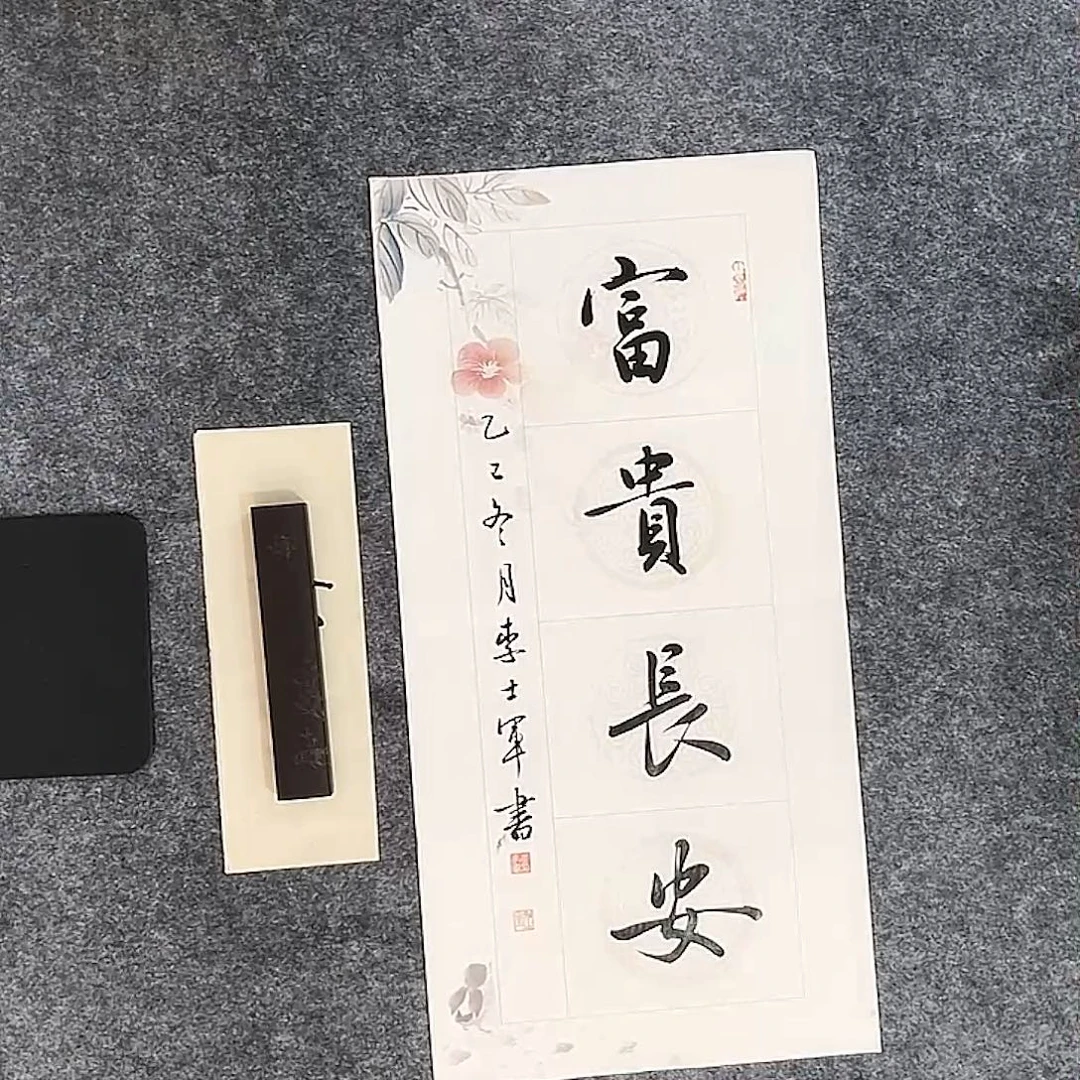 富貴長安
乙巳冬月李士軍書